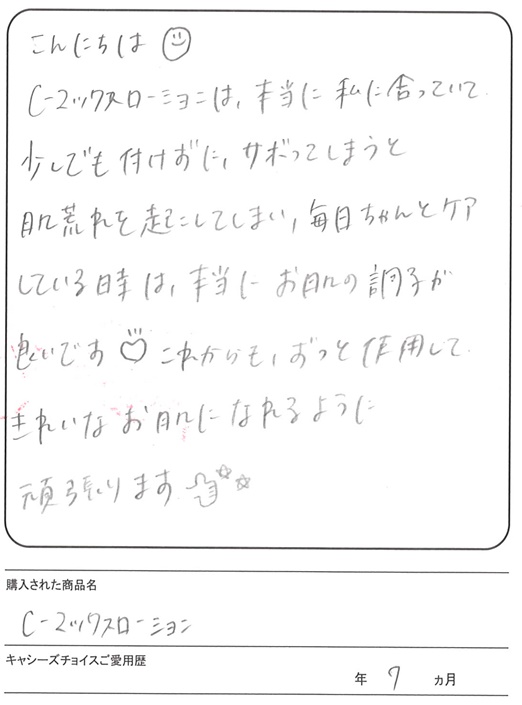 こんにちは
C-マックスローションは、本当に私に合っていて
少しでも付けずに、サボってしまうと
肌荒れを起こしてしまい、毎日ちゃんとケア
している時は、本当にお肌の調子が
良いです♡これからも、ずっと使用して
きれいなお肌になれるように
頑張ります
購入された商品名
C-マックスローション
キャシーズチョイスご愛用歴
年 7 ヵ月